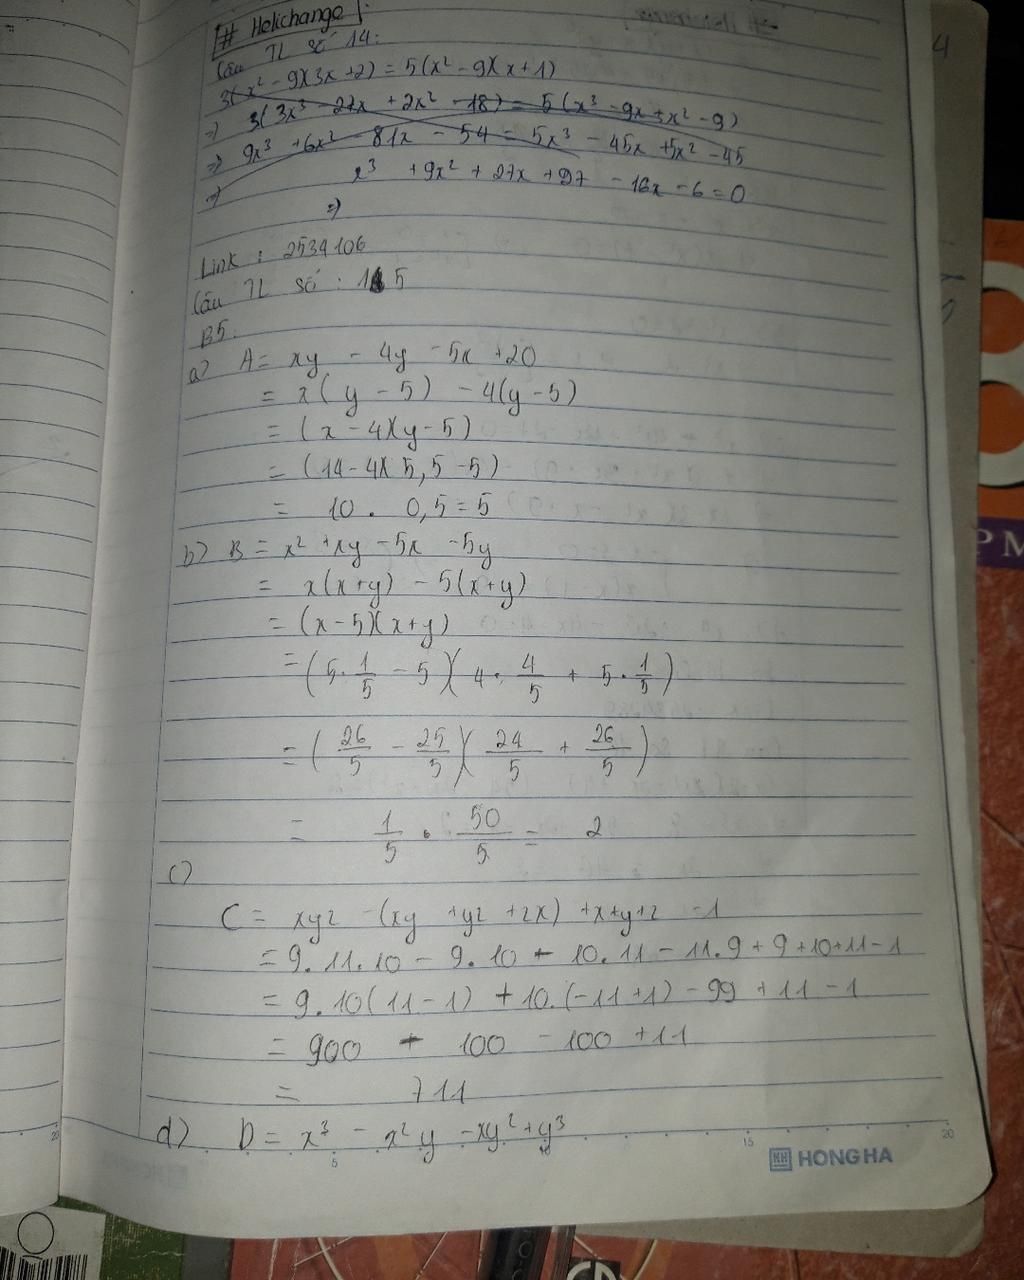 # Helichange
Câu TL số 14:
3(x² - 9)(3x + 2) = 5(x² - 9)(x + 1)
=> 3(3x³ - 27x + 2x² - 18) = 5(x³ - 9x + x² - 9)
=> 9x³ + 6x² - 81x - 54 = 5x³ - 45x + 5x² - 45
=> x³ + 9x² + 27x + 27 - 16x - 6 = 0
=>
Link : 2534106
Câu TL số : 15
B5:
a) A = xy - 4y - 5x + 20
= x(y - 5) - 4(y - 5)
= (x - 4)(y - 5)
= (14 - 4)(5,5 - 5)
= 10 . 0,5 = 5
b) B = x² + xy - 5x - 5y
= x(x + y) - 5(x + y)
= (x - 5)(x + y)
= (5 . 1/5 - 5)(4 . 4/5 + 5 . 1/5)
= (26/5 - 25/5)(24/5 + 26/5)
= 1/5 . 50/5 = 2
c)
C = xyz - (xy + yz + zx) + x + y + z - 1
= 9. 11. 10 - 9. 10 - 10. 11 - 11. 9 + 9 + 10 + 11 - 1
= 9. 10(11 - 1) + 10.(-11 + 1) - 99 + 11 - 1
= 900 - 100 - 100 + 11
= 711
d) D = x³ - x²y - xy² + y³
5 10 15 20
HONG HA
20
4
PM